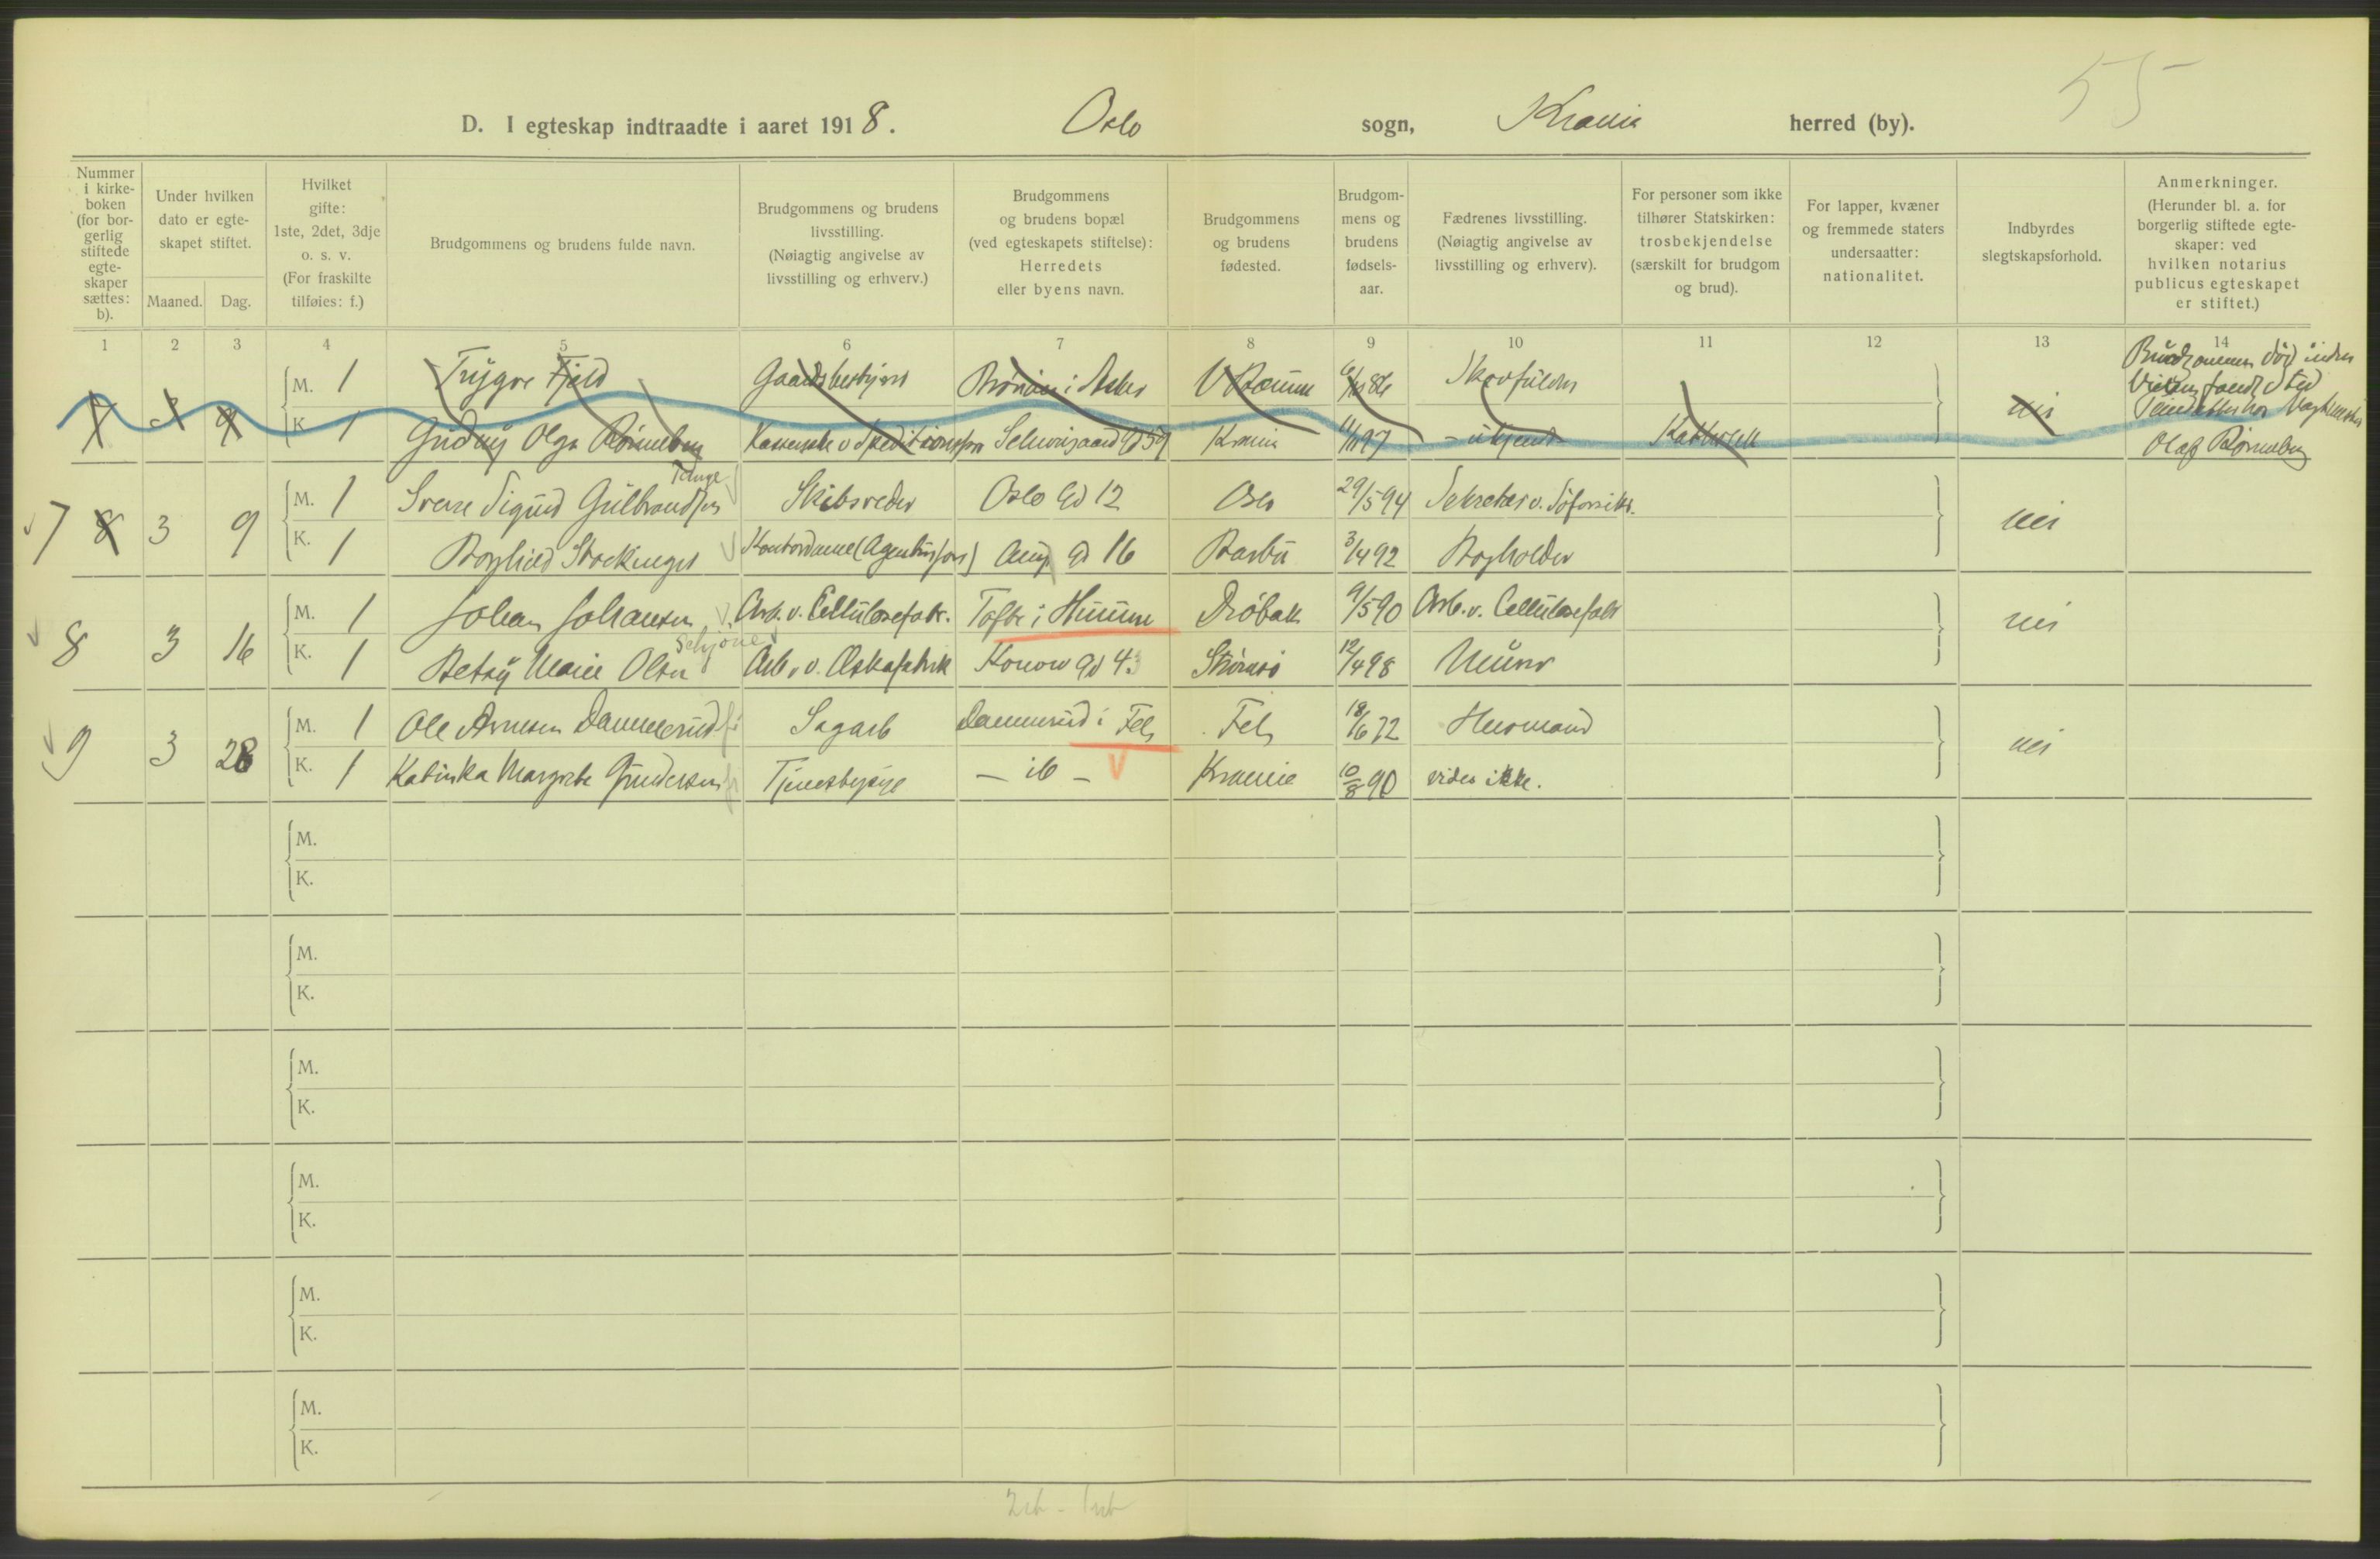 55
D. I egteskap indtraadte i aaret 1918. Oslo sogn, Krania herred (by).
Nummer i kirke-boken (for bor-gerlig stiftede egte-skaper sættes: b).
Under hvilken dato er egte-skapet stiftet.
Maaned. Dag.
Hvilket gifte: 1ste, 2det, 3dje o. s. v. (For fraskilte tilføies: f.)
Brudgommens og brudens fulde navn.
Brudgommens og brudens livsstilling. (Nøiagtig angivelse av livsstilling og erhverv.)
Brudgommens og brudens bopæl (ved egteskapets stiftelse): Herredets eller byens navn.
Brudgommens og brudens fødested.
Brudgom-mens og brudens fødsels-aar.
Fædrenes livsstilling. (Nøiagtig angivelse av livsstilling og erhverv).
For personer som ikke tilhører Statskirken: trosbekjendelse (særskilt for brudgom og brud).
For lapper, kvæner og fremmede staters undersaatter: nationalitet.
Indbyrdes slegtskapsforhold.
Anmerkninger. (Herunder bl. a. for borgerlig stiftede egte-skaper: ved hvilken notarius publicus egteskapet er stiftet.)
1 2 3 4 5 6 7 8 9 10 11 12 13 14
M. 1 Trygve Fjeld Gaardsbestyrer i Asker V. Bærum 86 Skovfuldm
Brudgommen død inden
Vielsen fandt sted
7 3 9 K. 1 Gudny Olga Kasserske v Speditionsfor Schweigaard Gd 59 Krania 97 - ukjendt Katholsk nei
Olaf
Tange
M. 1 Sverre Sigurd Gulbrandsen Skibsreder Oslo Gd 12 Oslo 29/5 94 Sekretær v. Søforsikr.
7 8 3 9 nei
K. 1 Borghild Stockinger Kontordame (Agenturforr) Gd 16 Barbu 3/4 92 Bogholder
M. 1 Johan Johansen Arb. v. Cellulosefabr. Tofte i Hurum Drøbak 9/5 90 Arb. v. Cellulosefabr
8 3 16 nei
Schjöne
K. 1 Betsy Marie Olsen Arb. v. Æskefabrik Konow Gd 4. Strømsø 12/4 98 Murer
M. 1 Ole Arnesen Dammerud Sagarb Dammerud i Fet Fet 18/6 72 Husmand
9 3 28 nei
K. 1 Katinka Margrete Gundersen Tjenestepige - ib - Krania 10/8 90 vides ikke.
M.
K.
M.
K.
M.
K.
M.
K.
M.
K.
M.
K.